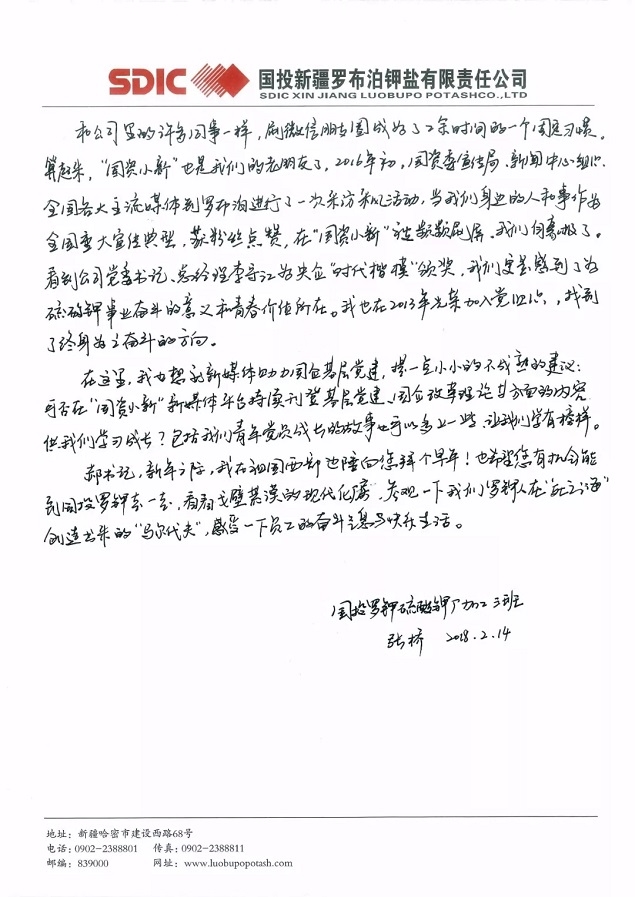 SDIC 国投新疆罗布泊钾盐有限责任公司
SDIC XIN JIANG LUOBUPO POTASHCO.,LTD
和公司里的许多同事一样，刷微信朋友圈成为了工余时间的一个固定习惯。
算起来，“国资小新”也是我们的老朋友了，2016年初，国资委宣传局、新闻中心组织
全国各大主流媒体到罗布泊进行了一次采访采风活动，当我们身边的人和事作为
全国重大宣传典型，获粉丝点赞，在“国资小新”被频频刷屏，我们自豪极了。
看到公司党委书记、总经理李守江为央企“时代楷模”颁奖，我们更是感到了为
硫酸钾事业奋斗的意义和青春价值所在。我也在2013年光荣加入党组织，找到
了终身为之奋斗的方向。
在这里，我也想就新媒体助力国企基层党建，提一点小小的不成熟的建议：
可否在“国资小新”新媒体平台持续刊登基层党建、国企改革理论等方面的内容
供我们学习成长？包括我们青年党员成长的故事也可以多上一些，让我们学有榜样。
郝书记，新年之际，我在祖国西部边陲向您拜个早年！也希望您有机会能
到国投罗钾去一去，看看戈壁荒漠的现代化厂，参观一下我们罗钾人在“死亡之海”
创造出来的“马尔代夫”，感受一下员工的奋斗气息与快乐生活。
国投罗钾硫酸钾厂加工三班
张桥 2018.2.14
地址：新疆哈密市建设西路68号
电话：0902-2388801 传真：0902-2388811
邮编：839000 网址：www.luobupopotash.com